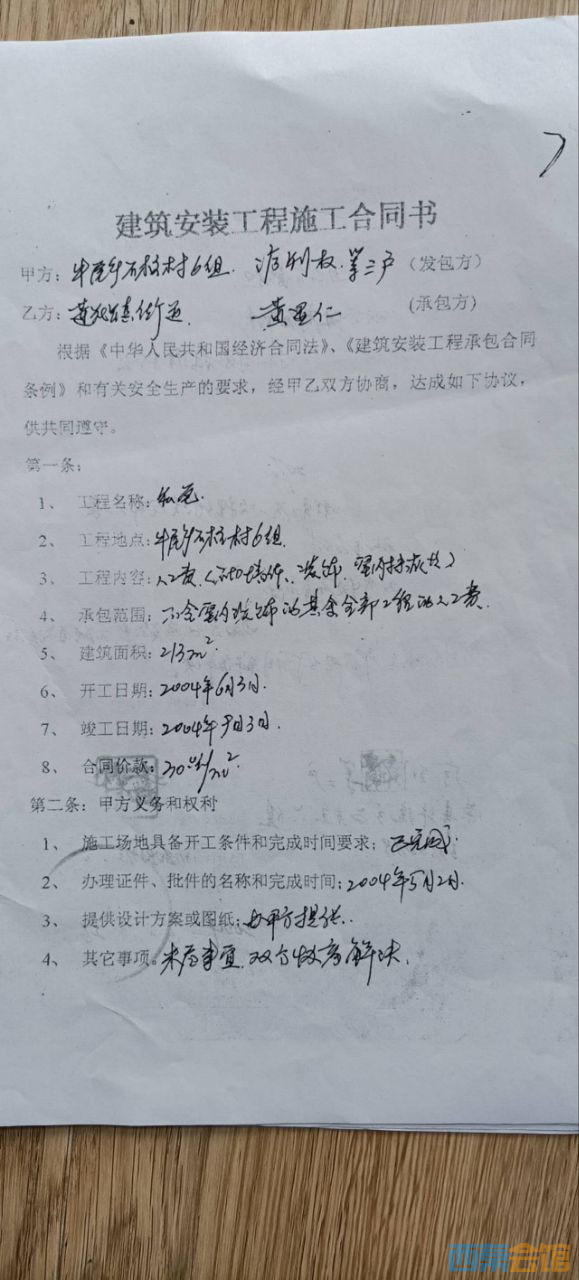 建筑安装工程施工合同书
甲方：牛尾乡石柱村6组 第三户（发包方）
乙方：（承包方）
根据《中华人民共和国经济合同法》、《建筑安装工程承包合同
条例》和有关安全生产的要求，经甲乙双方协商，达成如下协议，
供共同遵守。
第一条：
1、 工程名称：私宅.
2、 工程地点：牛尾乡石柱村6组.
3、 工程内容：人工费
4、 承包范围：不含室内装饰的其余全部工程的人工费.
5、 建筑面积：213m².
6、 开工日期：2004年6月3日.
7、 竣工日期：2004年9月3日.
8、 合同价款：/m²
第二条：甲方义务和权利
1、 施工场地具备开工条件和完成时间要求：已完成.
2、 办理证件、批件的名称和完成时间：2004年5月2日.
3、 提供设计方案或图纸：由甲方提供.
4、 其它事项。未尽事宜.双方协商解决.
西祠会馆